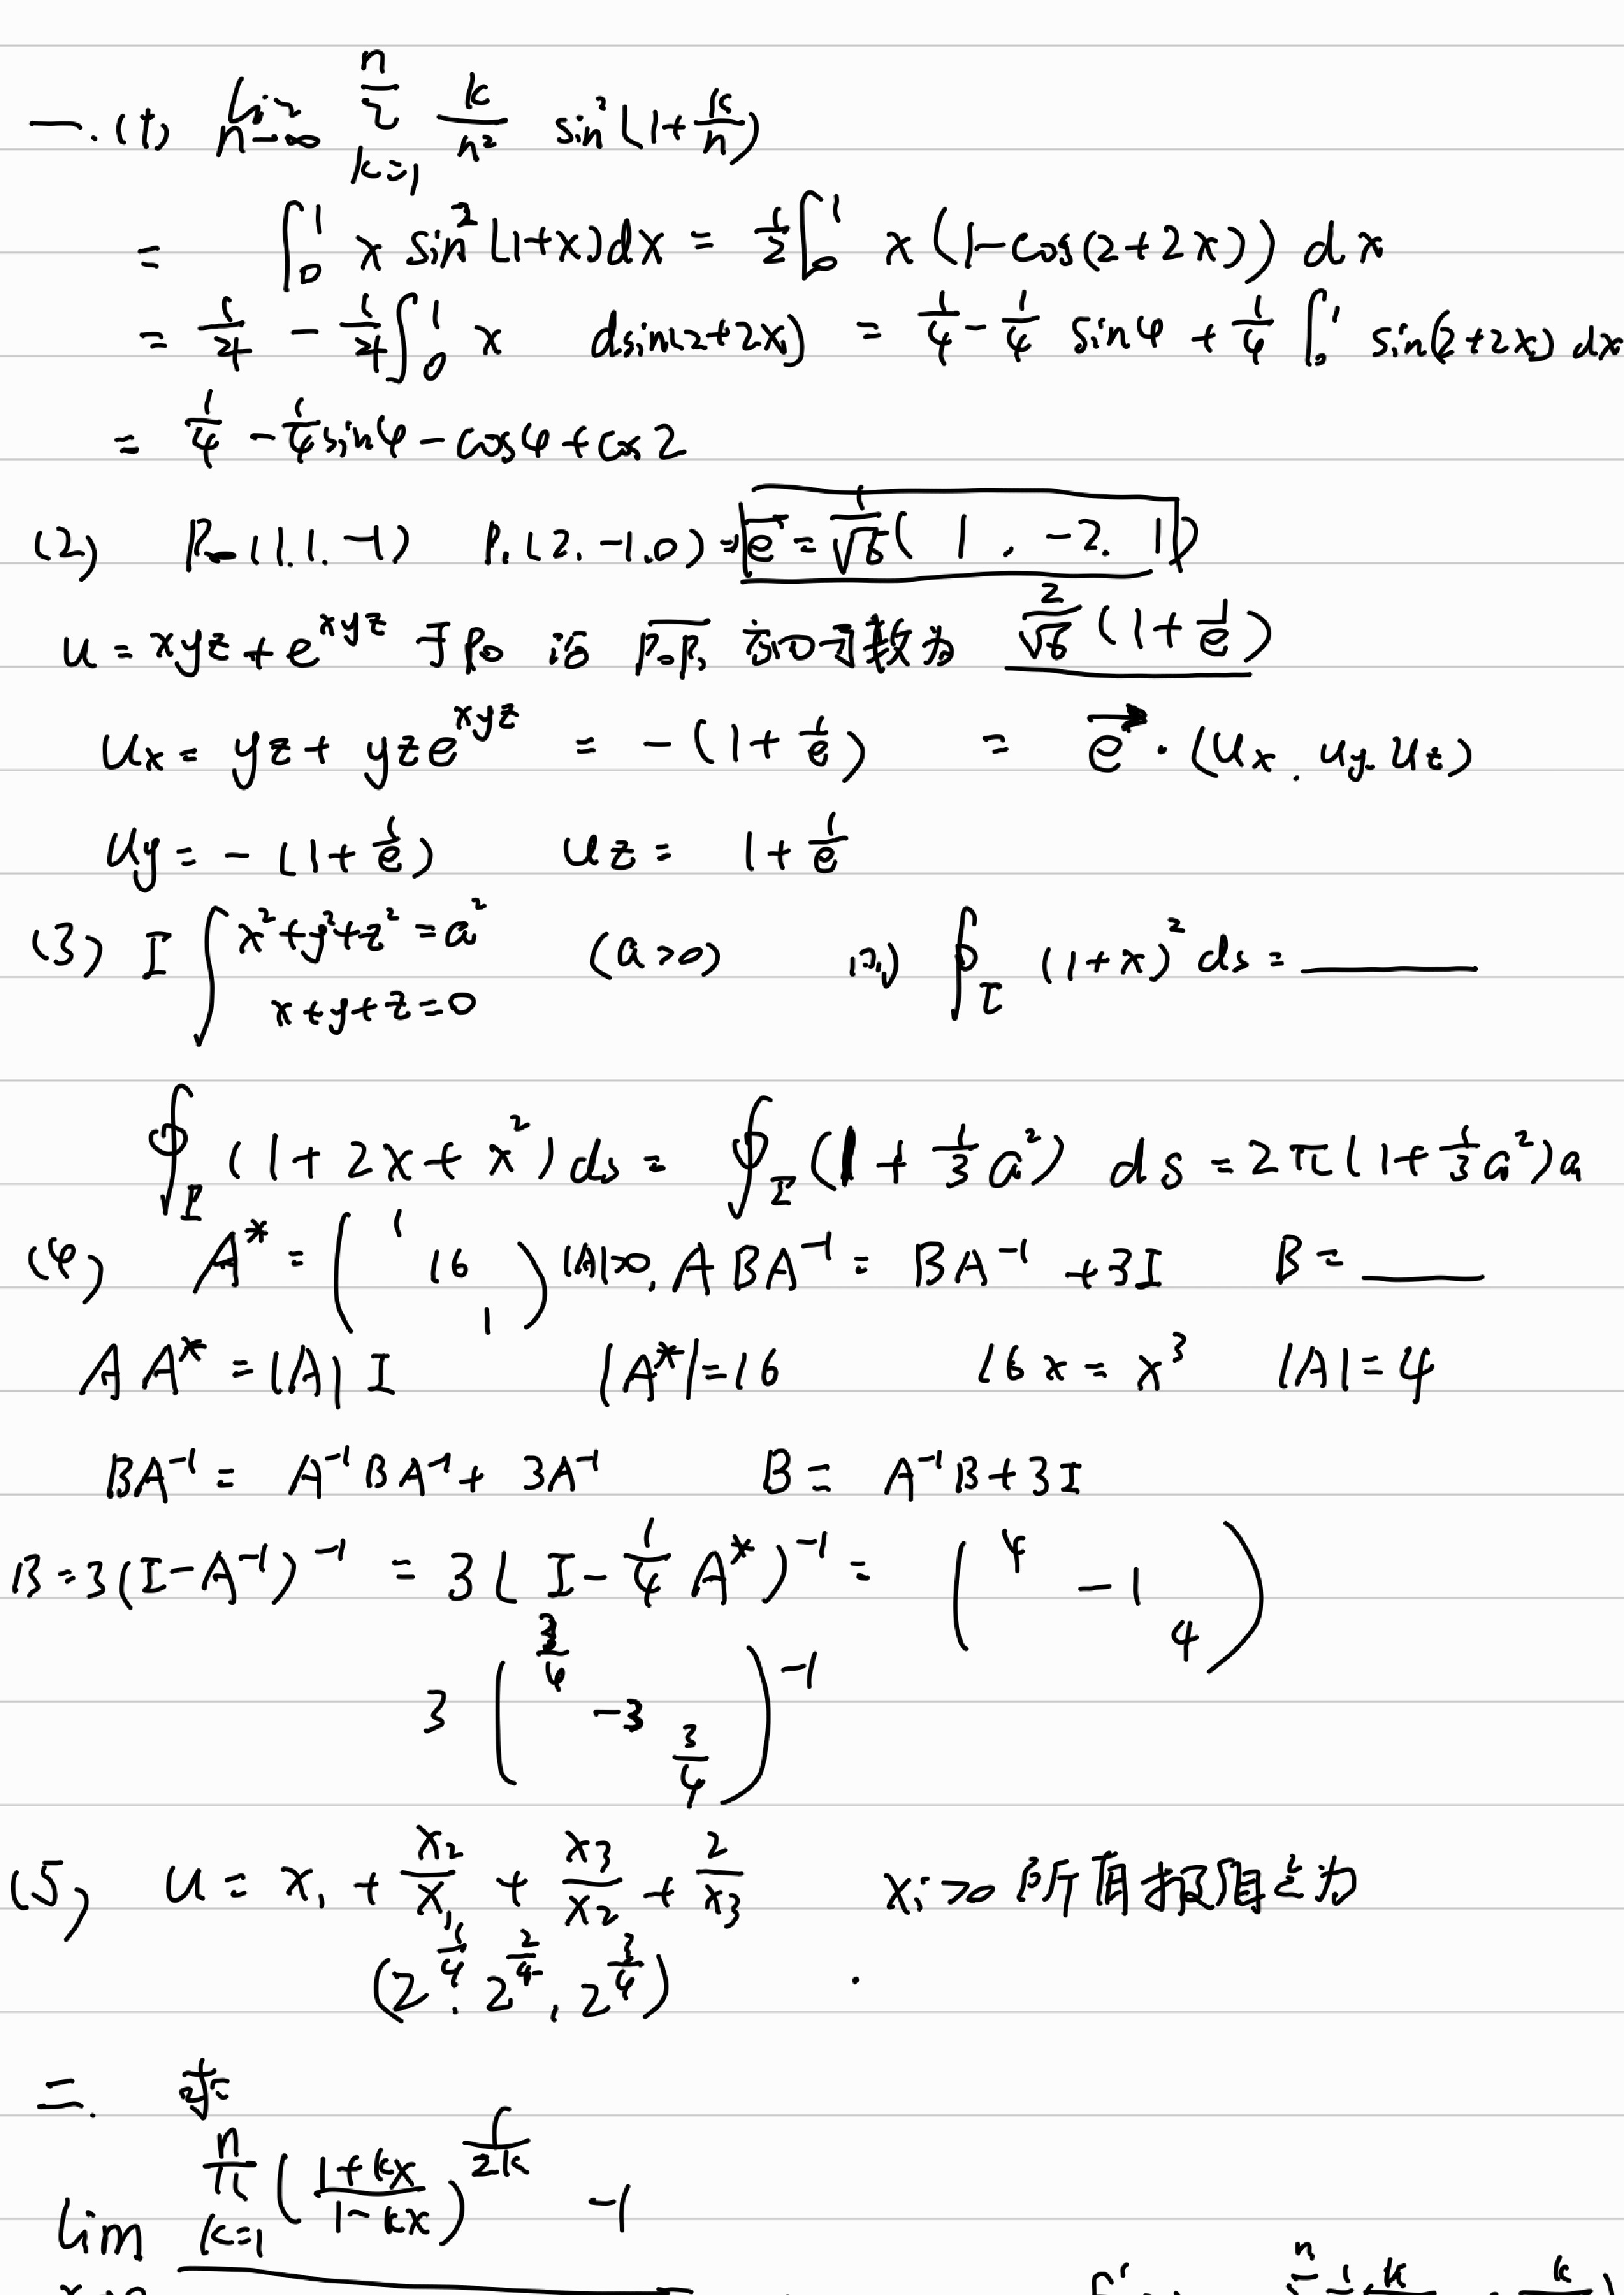 一.(1) lim n→∞ Σ k=1 n k/n² sin²(1+k/n)
= ∫₀¹ x sin²(1+x)dx = 1/2 ∫₀¹ x(1-cos(2+2x)) dx
= 1/4 - 1/4 ∫₀¹ x dsin(2+2x) = 1/4 - 1/4 sin4 + 1/4 ∫₀¹ sin(2+2x) dx
= 1/4 - 1/4 sin4 - cos4 + cos2
(2) P₀(1.1.-1) P₁(2.-1.0) ⇒ e = 1/√6 (1, -2. 1)
u = xyz + e^xyz 于P₀ 沿 P₀P₁ 方向导数为 2/√6 (1+1/e)
uₓ = yz + yze^xyz = -(1+1/e) = e · (uₓ. u_y. u_z)
u_y = -(1+1/e) u_z = 1+1/e
(3) I { x²+y²+z²=a² x+y+z=0 (a>0) 则 ∮_I (1+x)² ds = ____
∮_I (1+2x+x²)ds = ∮_I (1+1/3 a²) ds = 2π(1+1/3 a²)a
(4) A* = ( 1 16 1 ) |A|>0, ABA⁻¹ = BA⁻¹ + 3I B = ____
AA* = |A| I |A*|=16 16x = x³ |A| = 4
BA⁻¹ = A⁻¹BA⁻¹ + 3A⁻¹ B = A⁻¹B + 3I
B = 3(I-A⁻¹)⁻¹ = 3(I - 1/4 A*)⁻¹ = ( 4 -1 4 )
3 ( 3/4 -3 3/4 )⁻¹
(5) u = x₁ + x₂/x₁ + x₃/x₂ + 2/x₃ xᵢ>0 所有极值点为
(2^1/4. 2^2/4, 2^3/4) .
二. 求
lim Π k=1 n ((1+kx)/(1-kx))^1/2k - 1